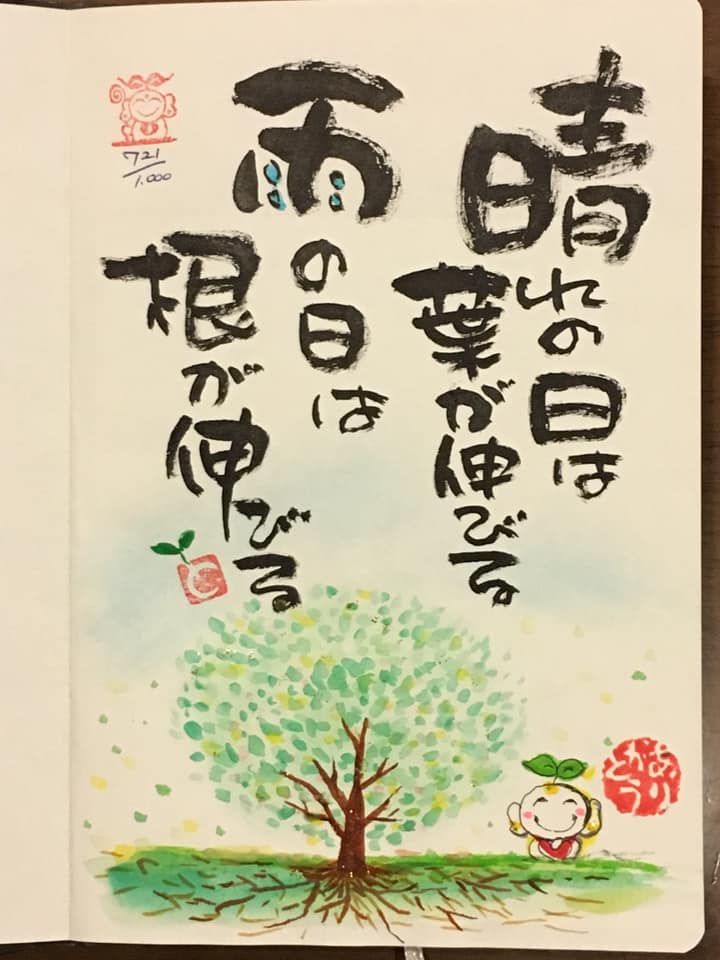 晴れの日は
葉が伸びる
雨の日は
根が伸びる
721/1.000